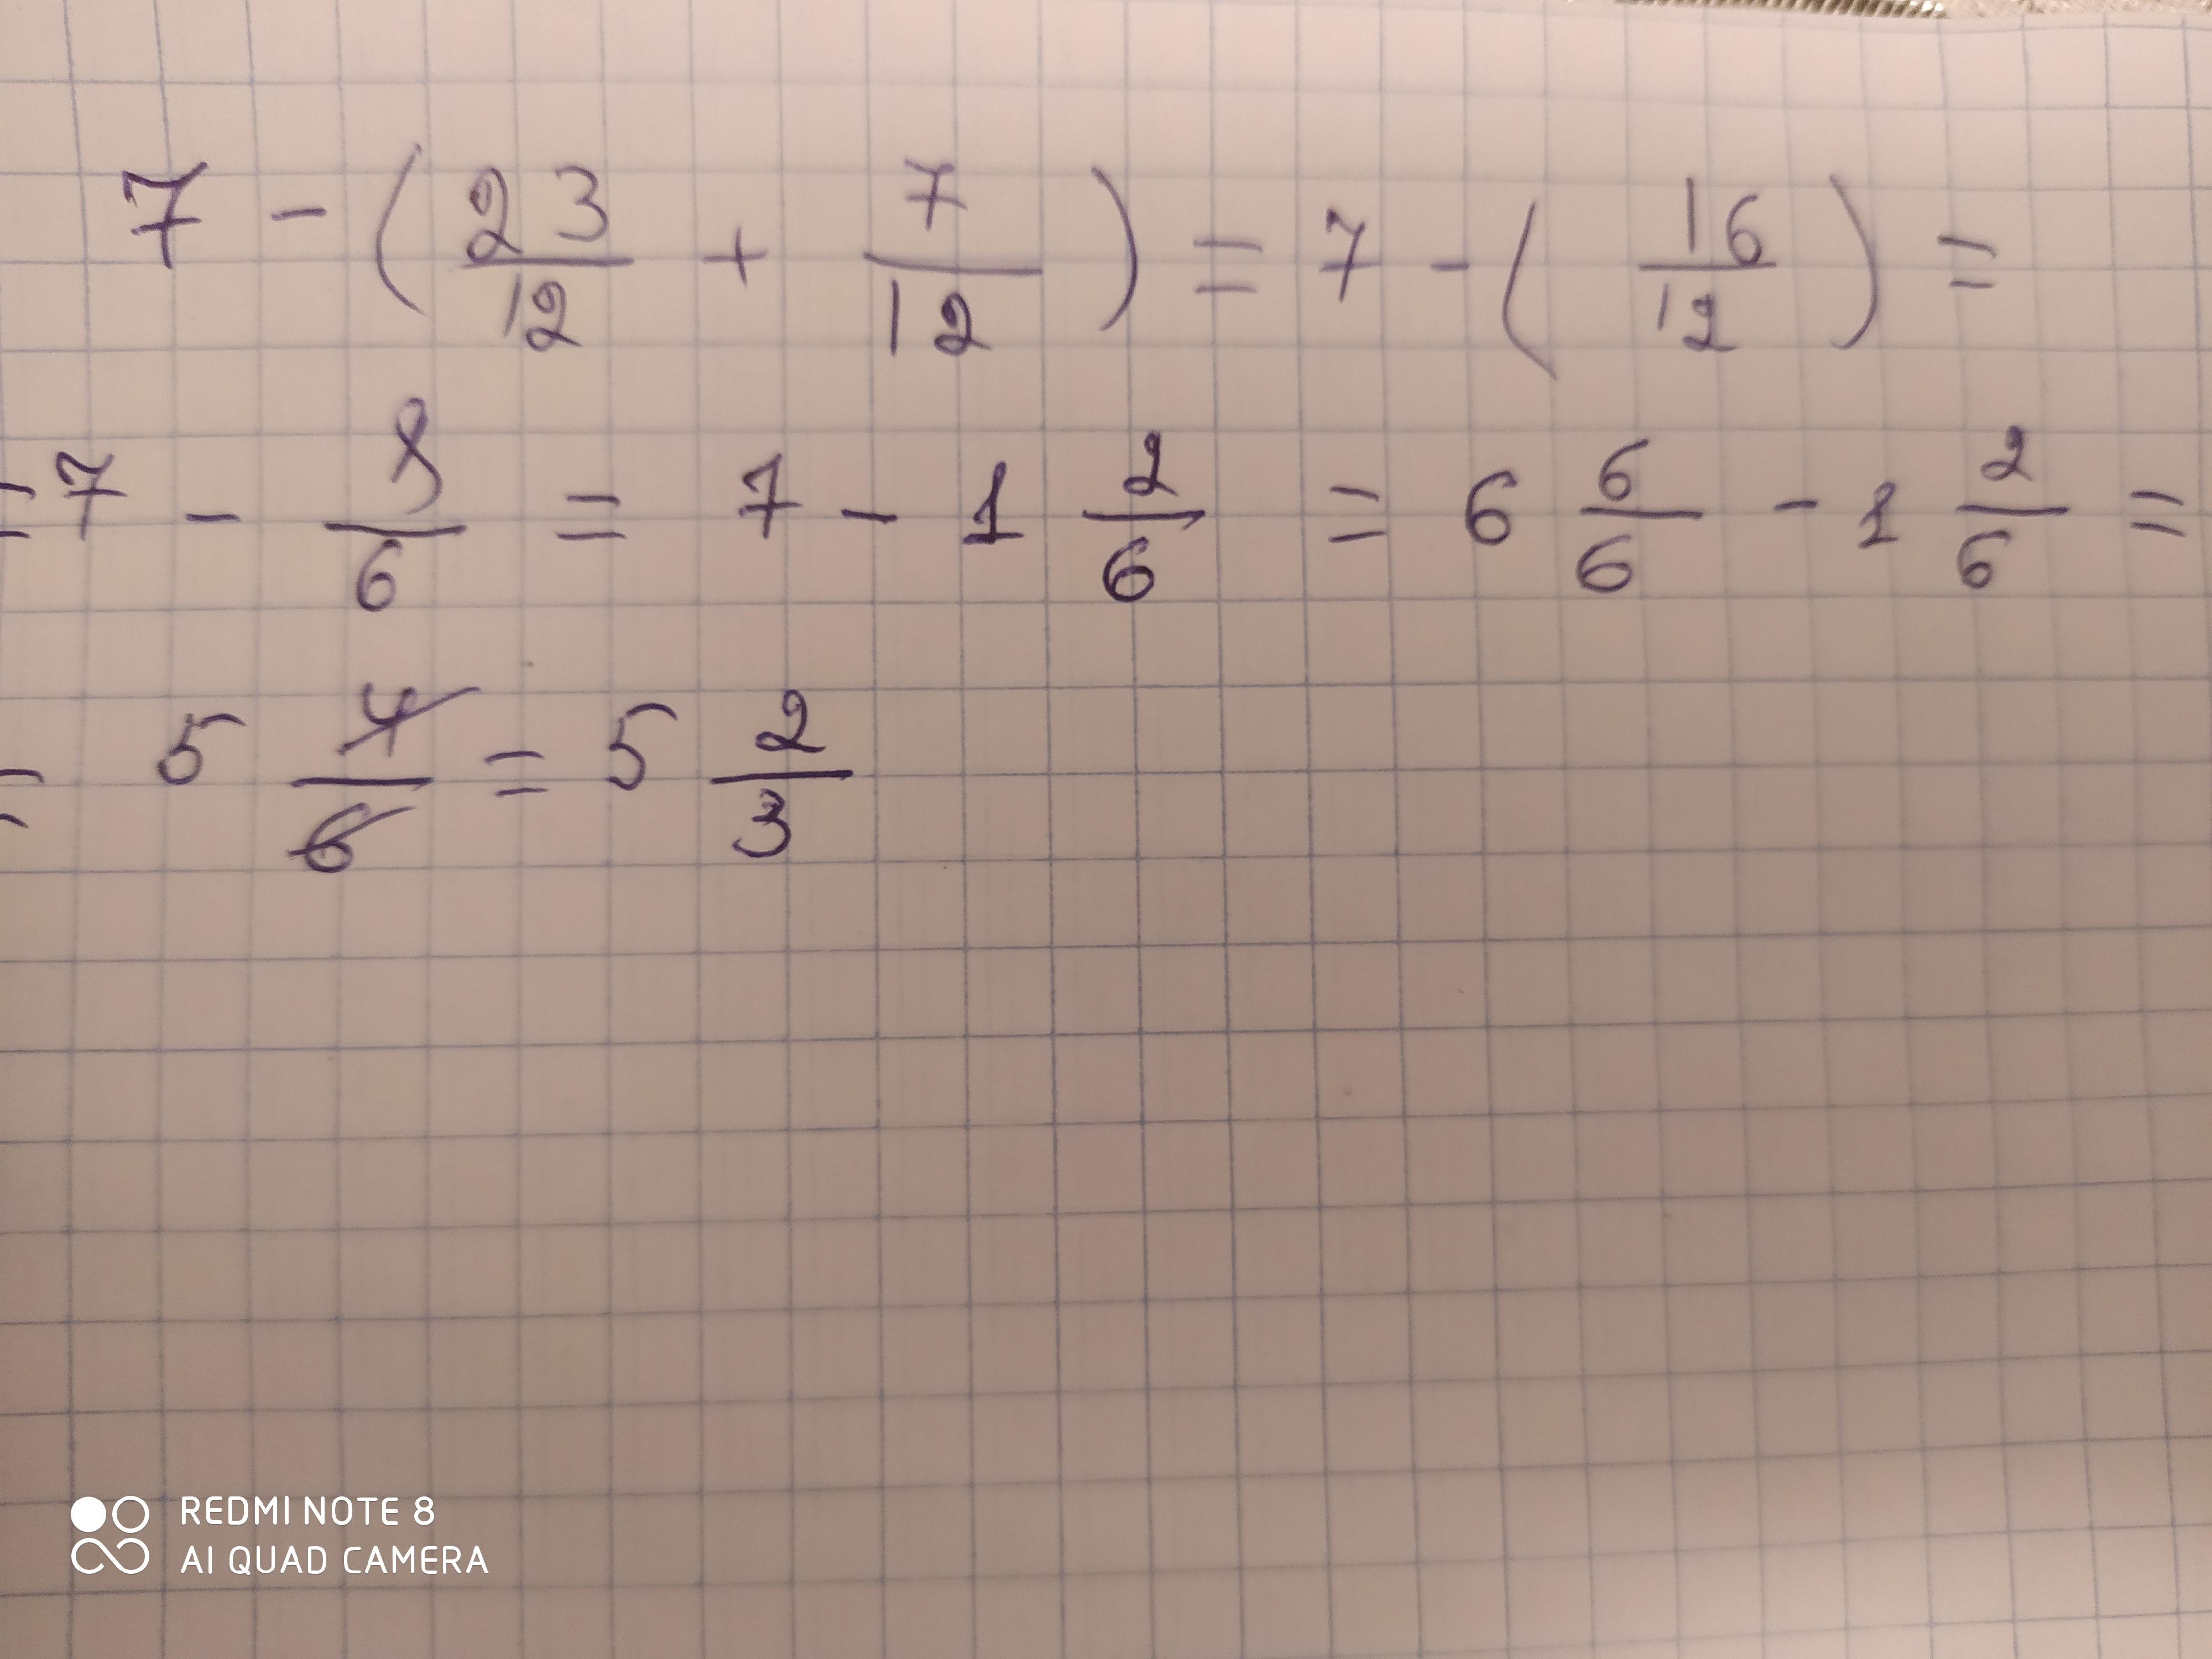 7 - ( 23/12 + 7/12 ) = 7 - ( 16/12 ) =
= 7 - 8/6 = 7 - 1 2/6 = 6 6/6 - 1 2/6 =
= 5 4/6 = 5 2/3
REDMI NOTE 8
AI QUAD CAMERA